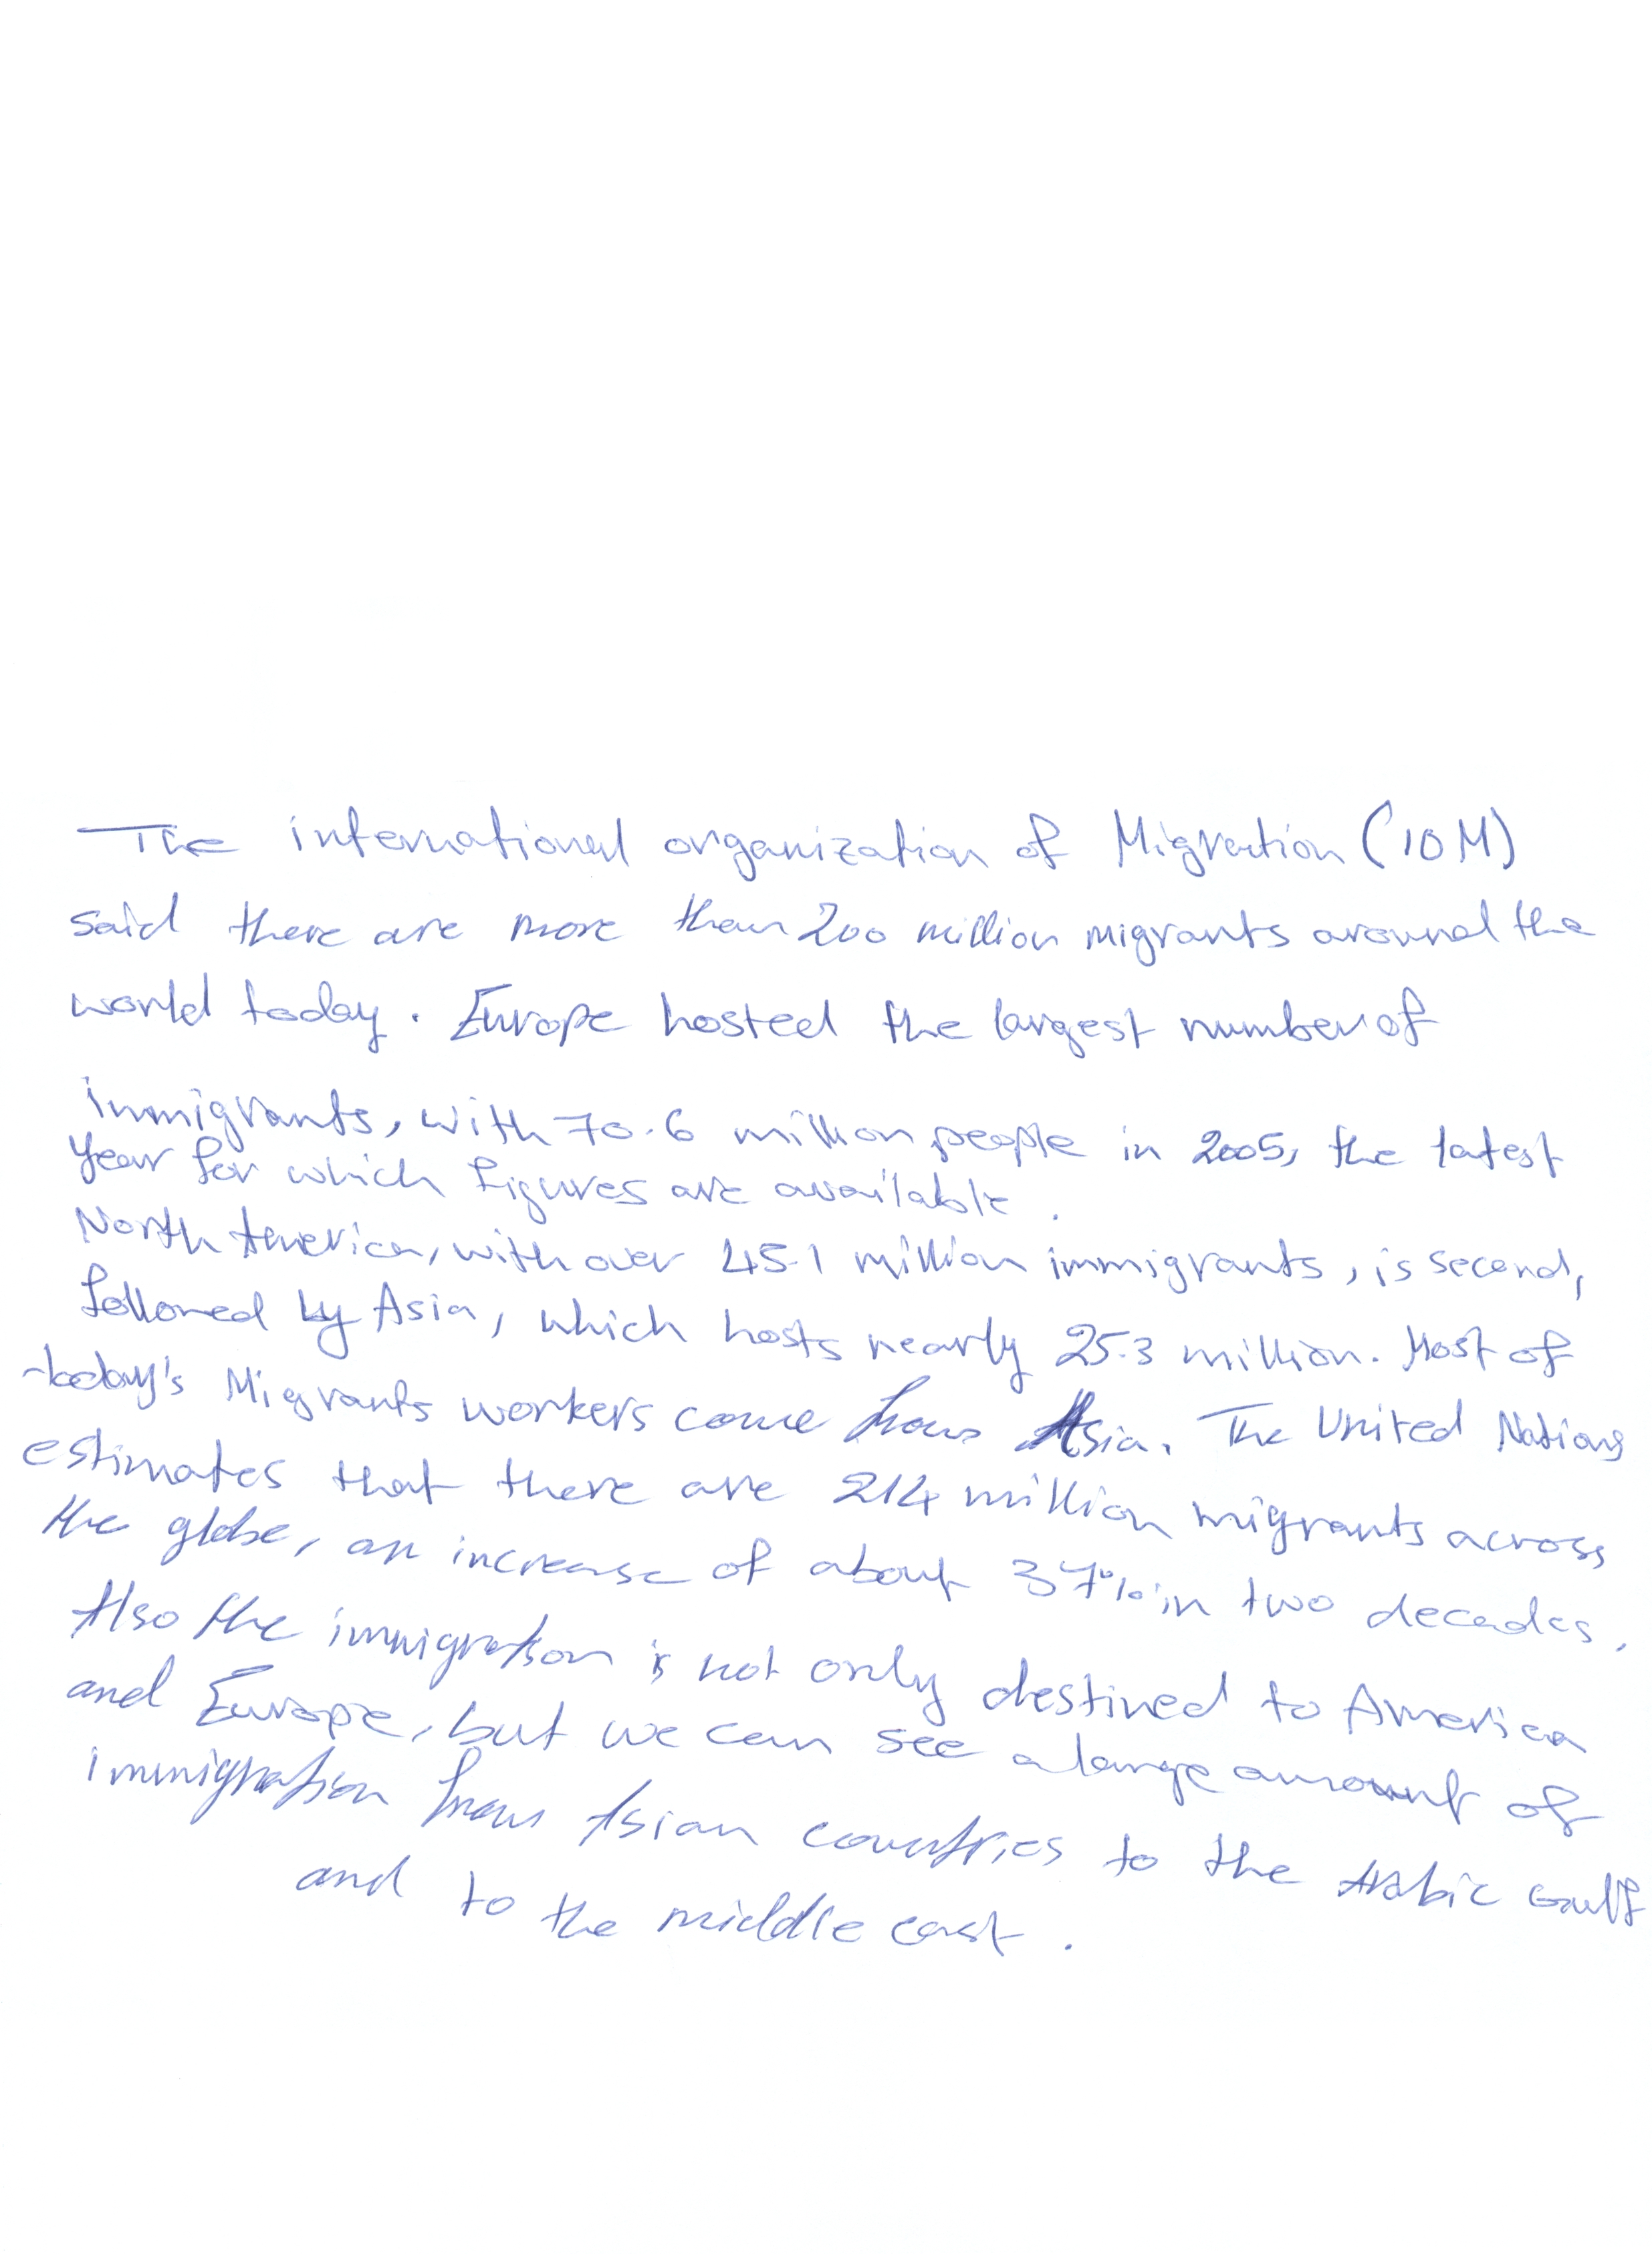 The international organization of Migration (IOM)
said there are more than 200 million migrants around the
world today. Europe hosted the largest number of
immigrants, with 70.6 million people in 2005, the latest
year for which figures are available.
North America, with over 45.1 million immigrants, is second,
followed by Asia, which hosts nearly 25.3 million. Most of
today's Migrants workers come from Asia. The United Nations
estimates that there are 214 million migrants across
the globe, an increase of about 37% in two decades.
Also the immigration is not only destined to America
and Europe, but we can see a large amount of
immigration from Asian countries to the Arabic Gulf
and to the middle east.